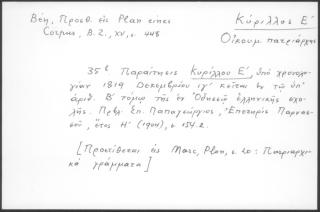 Βέη, Προσθ. εἰς Plan eines
Corpus, B.Z., XV, σ. 448
Κύριλλος Ε´
Οἰκουμ. πατριάρχης
35ον Παραίτησις Κυρίλλου Ε´, ὑπὸ χρονολο-
γίαν 1819 Δεκεμβρίου ιγ´ κεῖται ἐν τῷ ὑπ᾽
ἀριθ. Β´ τόμῳ τῆς ἐν Ὀδησσῷ ἑλληνικῆς σχο-
λῆς. Πρβλ. Σπ. Παπαγεωργίου, "Ἐπετηρὶς Παρνασ-
σοῦ", ἔτος Η´ (1904), σ. 154.2.
[Προστίθεται εἰς Marc, Plan, σ. 20: Πατριαρχι-
κὰ γράμματα]